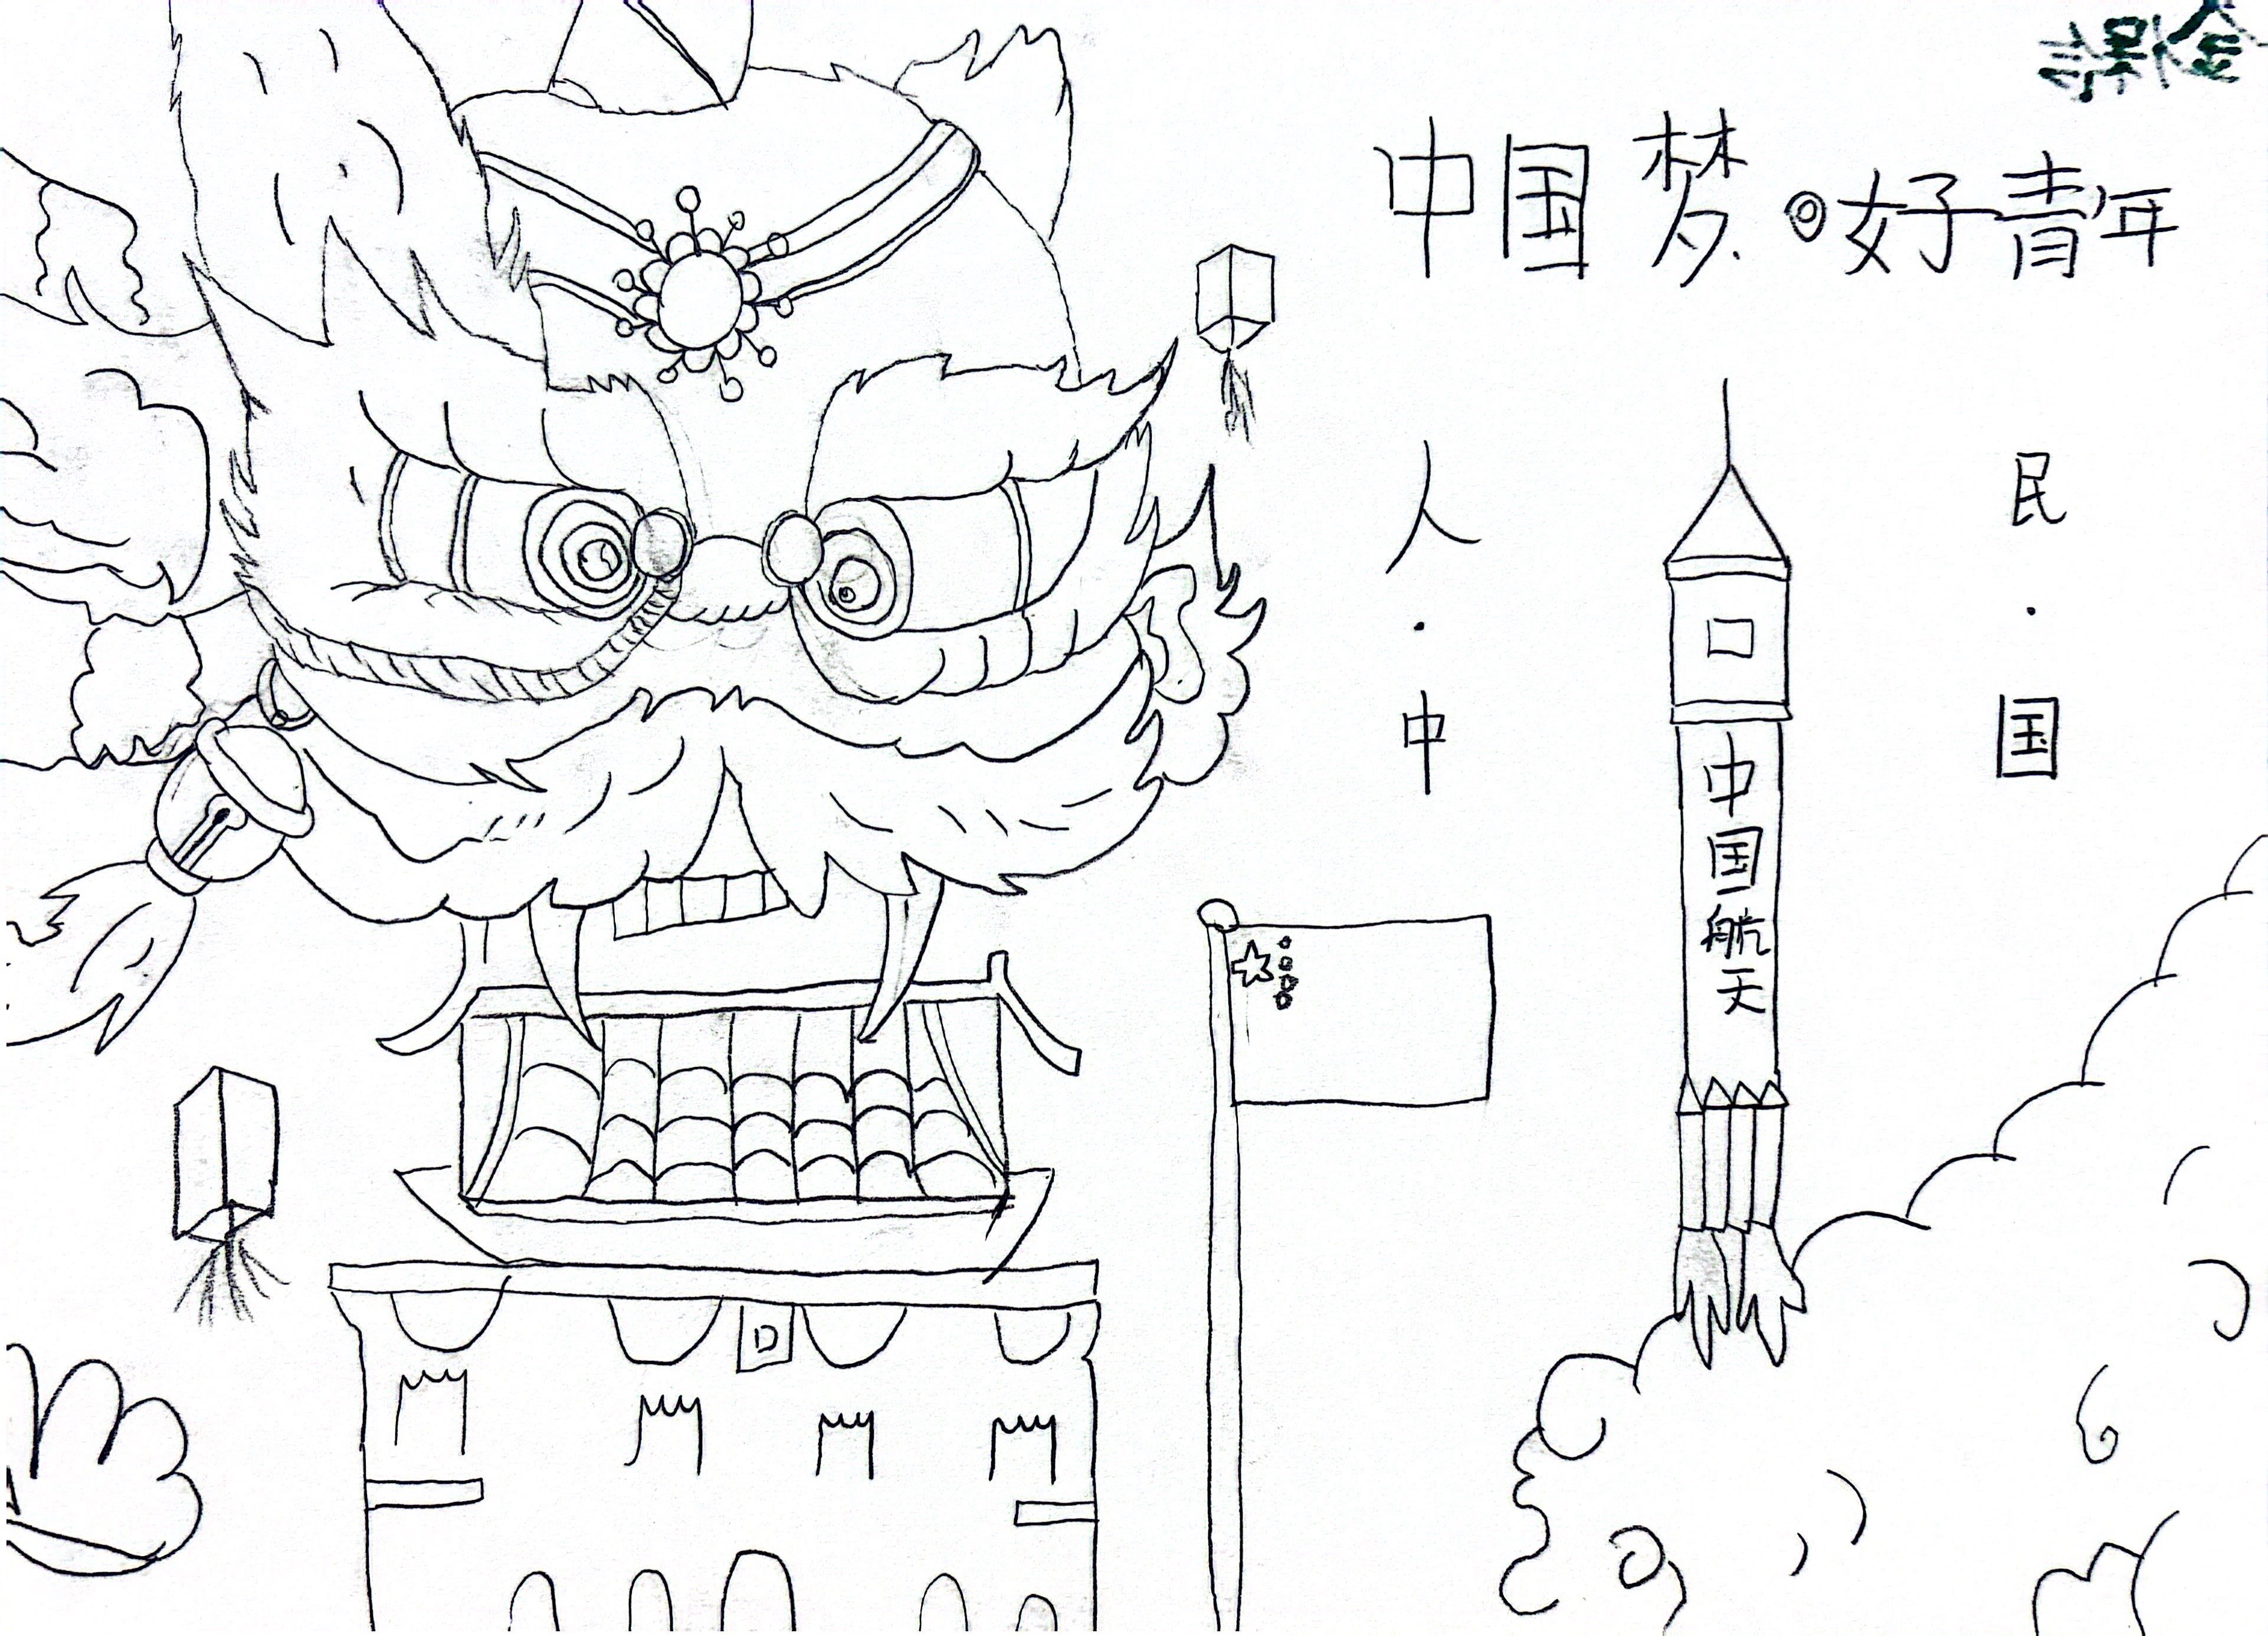 中国梦·好青年
人·中
民·国
中国航天